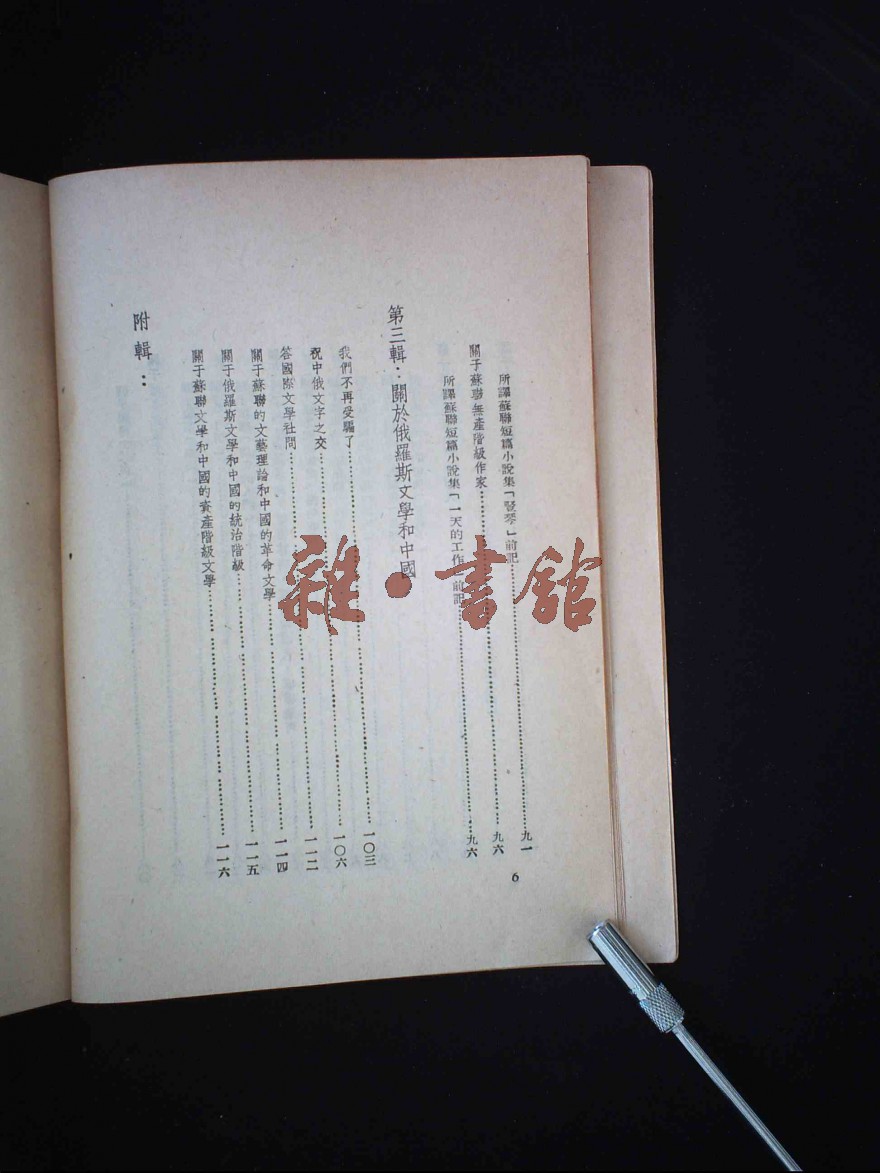 所譯蘇聯短篇小說集「豎琴」前記……九一
關于蘇聯無產階級作家……九六
所譯蘇聯短篇小說集「一天的工作」前記……九六
第三輯：關於俄羅斯文學和中國
我們不再受騙了……一〇三
祝中俄文字之交……一〇六
答國際文學社問……一一二
關于蘇聯的文藝理論和中國的革命文學……一一四
關于俄羅斯文學和中國的統治階級……一一五
關于蘇聯文學和中國的資產階級文學……一一六
附輯：
6
雜·書館